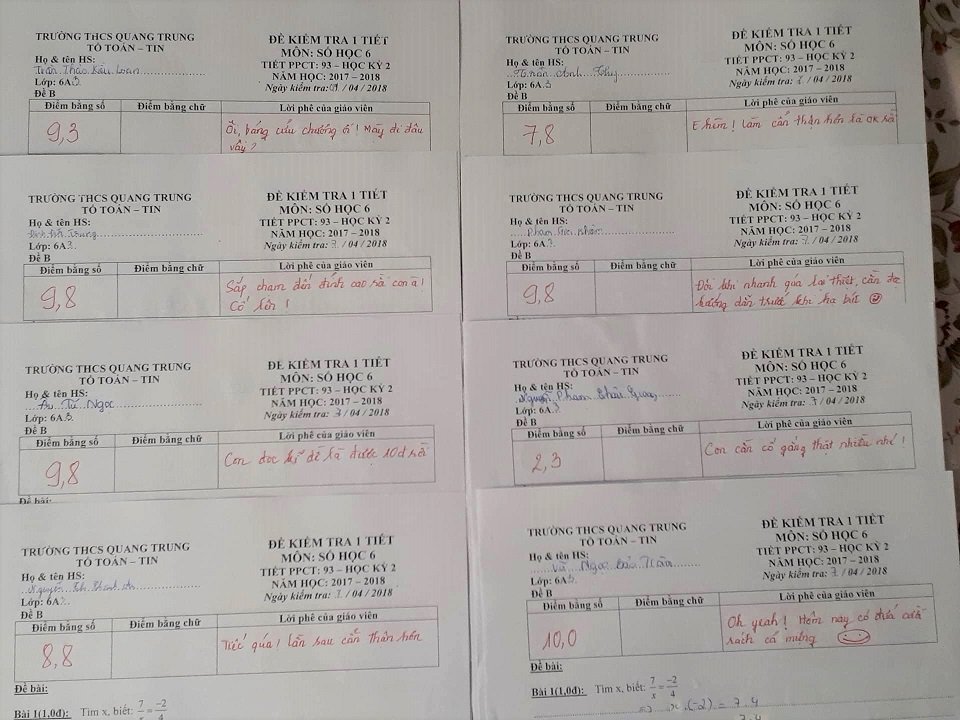 TRƯỜNG THCS QUANG TRUNG
TỔ TOÁN – TIN
ĐỀ KIỂM TRA 1 TIẾT
MÔN: SỐ HỌC 6
TIẾT PPCT: 93 – HỌC KỲ 2
NĂM HỌC: 2017 – 2018
Ngày kiểm tra: / 04 / 2018
Họ & tên HS:
Lớp: 6A
Đề B
Điểm bằng số Điểm bằng chữ Lời phê của giáo viên
9,3
Ối, bảng cửu chương ơi! Mày đi đâu
vậy?
TRƯỜNG THCS QUANG TRUNG
TỔ TOÁN – TIN
ĐỀ KIỂM TRA 1 TIẾT
MÔN: SỐ HỌC 6
TIẾT PPCT: 93 – HỌC KỲ 2
NĂM HỌC: 2017 – 2018
Ngày kiểm tra: 7 / 04 / 2018
Họ & tên HS:
Anh Thy
Lớp: 6A3
Đề B
Điểm bằng số Điểm bằng chữ Lời phê của giáo viên
7,8
E hèm! làm cẩn thận hơn là ok rồi
TRƯỜNG THCS QUANG TRUNG
TỔ TOÁN – TIN
ĐỀ KIỂM TRA 1 TIẾT
MÔN: SỐ HỌC 6
TIẾT PPCT: 93 – HỌC KỲ 2
NĂM HỌC: 2017 – 2018
Ngày kiểm tra: 7 / 04 / 2018
Họ & tên HS:
Trung
Lớp: 6A3
Đề B
Điểm bằng số Điểm bằng chữ Lời phê của giáo viên
9,8
Sắp chạm đến đỉnh cao rồi con ạ!
Cố lên!
TRƯỜNG THCS QUANG TRUNG
TỔ TOÁN – TIN
ĐỀ KIỂM TRA 1 TIẾT
MÔN: SỐ HỌC 6
TIẾT PPCT: 93 – HỌC KỲ 2
NĂM HỌC: 2017 – 2018
Ngày kiểm tra: 7 / 04 / 2018
Họ & tên HS:
Phạm
Lớp: 6A3
Đề B
Điểm bằng số Điểm bằng chữ Lời phê của giáo viên
9,8
Đôi khi nhanh quá lại thiệt, cần đọc
hướng dẫn trước khi hạ bút
TRƯỜNG THCS QUANG TRUNG
TỔ TOÁN – TIN
ĐỀ KIỂM TRA 1 TIẾT
MÔN: SỐ HỌC 6
TIẾT PPCT: 93 – HỌC KỲ 2
NĂM HỌC: 2017 – 2018
Ngày kiểm tra: 7 / 04 / 2018
Họ & tên HS:
Ngọc
Lớp: 6A3
Đề B
Điểm bằng số Điểm bằng chữ Lời phê của giáo viên
9,8
Con đọc kỹ đề là được 10đ rồi
Đề bài:
TRƯỜNG THCS QUANG TRUNG
TỔ TOÁN – TIN
ĐỀ KIỂM TRA 1 TIẾT
MÔN: SỐ HỌC 6
TIẾT PPCT: 93 – HỌC KỲ 2
NĂM HỌC: 2017 – 2018
Ngày kiểm tra: 7 / 04 / 2018
Họ & tên HS:
Nguyễn Phạm
Lớp: 6A3
Đề B
Điểm bằng số Điểm bằng chữ Lời phê của giáo viên
2,3
Con cần cố gắng thật nhiều nhé!
TRƯỜNG THCS QUANG TRUNG
TỔ TOÁN – TIN
ĐỀ KIỂM TRA 1 TIẾT
MÔN: SỐ HỌC 6
TIẾT PPCT: 93 – HỌC KỲ 2
NĂM HỌC: 2017 – 2018
Ngày kiểm tra: 7 / 04 / 2018
Họ & tên HS:
Nguyễn
Lớp: 6A
Đề B
Điểm bằng số Điểm bằng chữ Lời phê của giáo viên
8,8
Tiếc quá! lần sau cẩn thận hơn
Đề bài:
Bài 1(1,0đ): Tìm x, biết: 7/x = -2/4
TRƯỜNG THCS QUANG TRUNG
TỔ TOÁN – TIN
ĐỀ KIỂM TRA 1 TIẾT
MÔN: SỐ HỌC 6
TIẾT PPCT: 93 – HỌC KỲ 2
NĂM HỌC: 2017 – 2018
Ngày kiểm tra: 7 / 04 / 2018
Họ & tên HS:
Vũ Ngọc Bảo Trân
Lớp: 6A3
Đề B
Điểm bằng số Điểm bằng chữ Lời phê của giáo viên
10,0
Oh yeah! Hôm nay có đứa cười
rách cả miệng
Đề bài:
Bài 1(1,0đ): Tìm x, biết: 7/x = -2/4
x.(-2) = 7.4
7.4